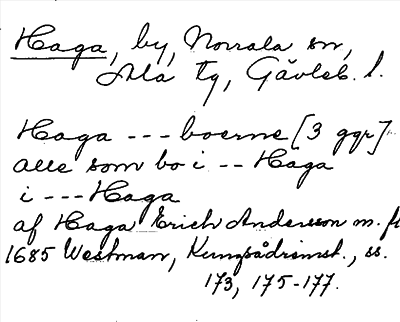 Haga, by, Norrala sn,
Ala tg, Gävleb. l.
Haga --- boerne [3 ggr]
alle som bo i -- Haga
i --- Haga
af Haga Erich Andersson m. fl
1685 Westman, Kungsådrinst., ss.
173, 175-177.